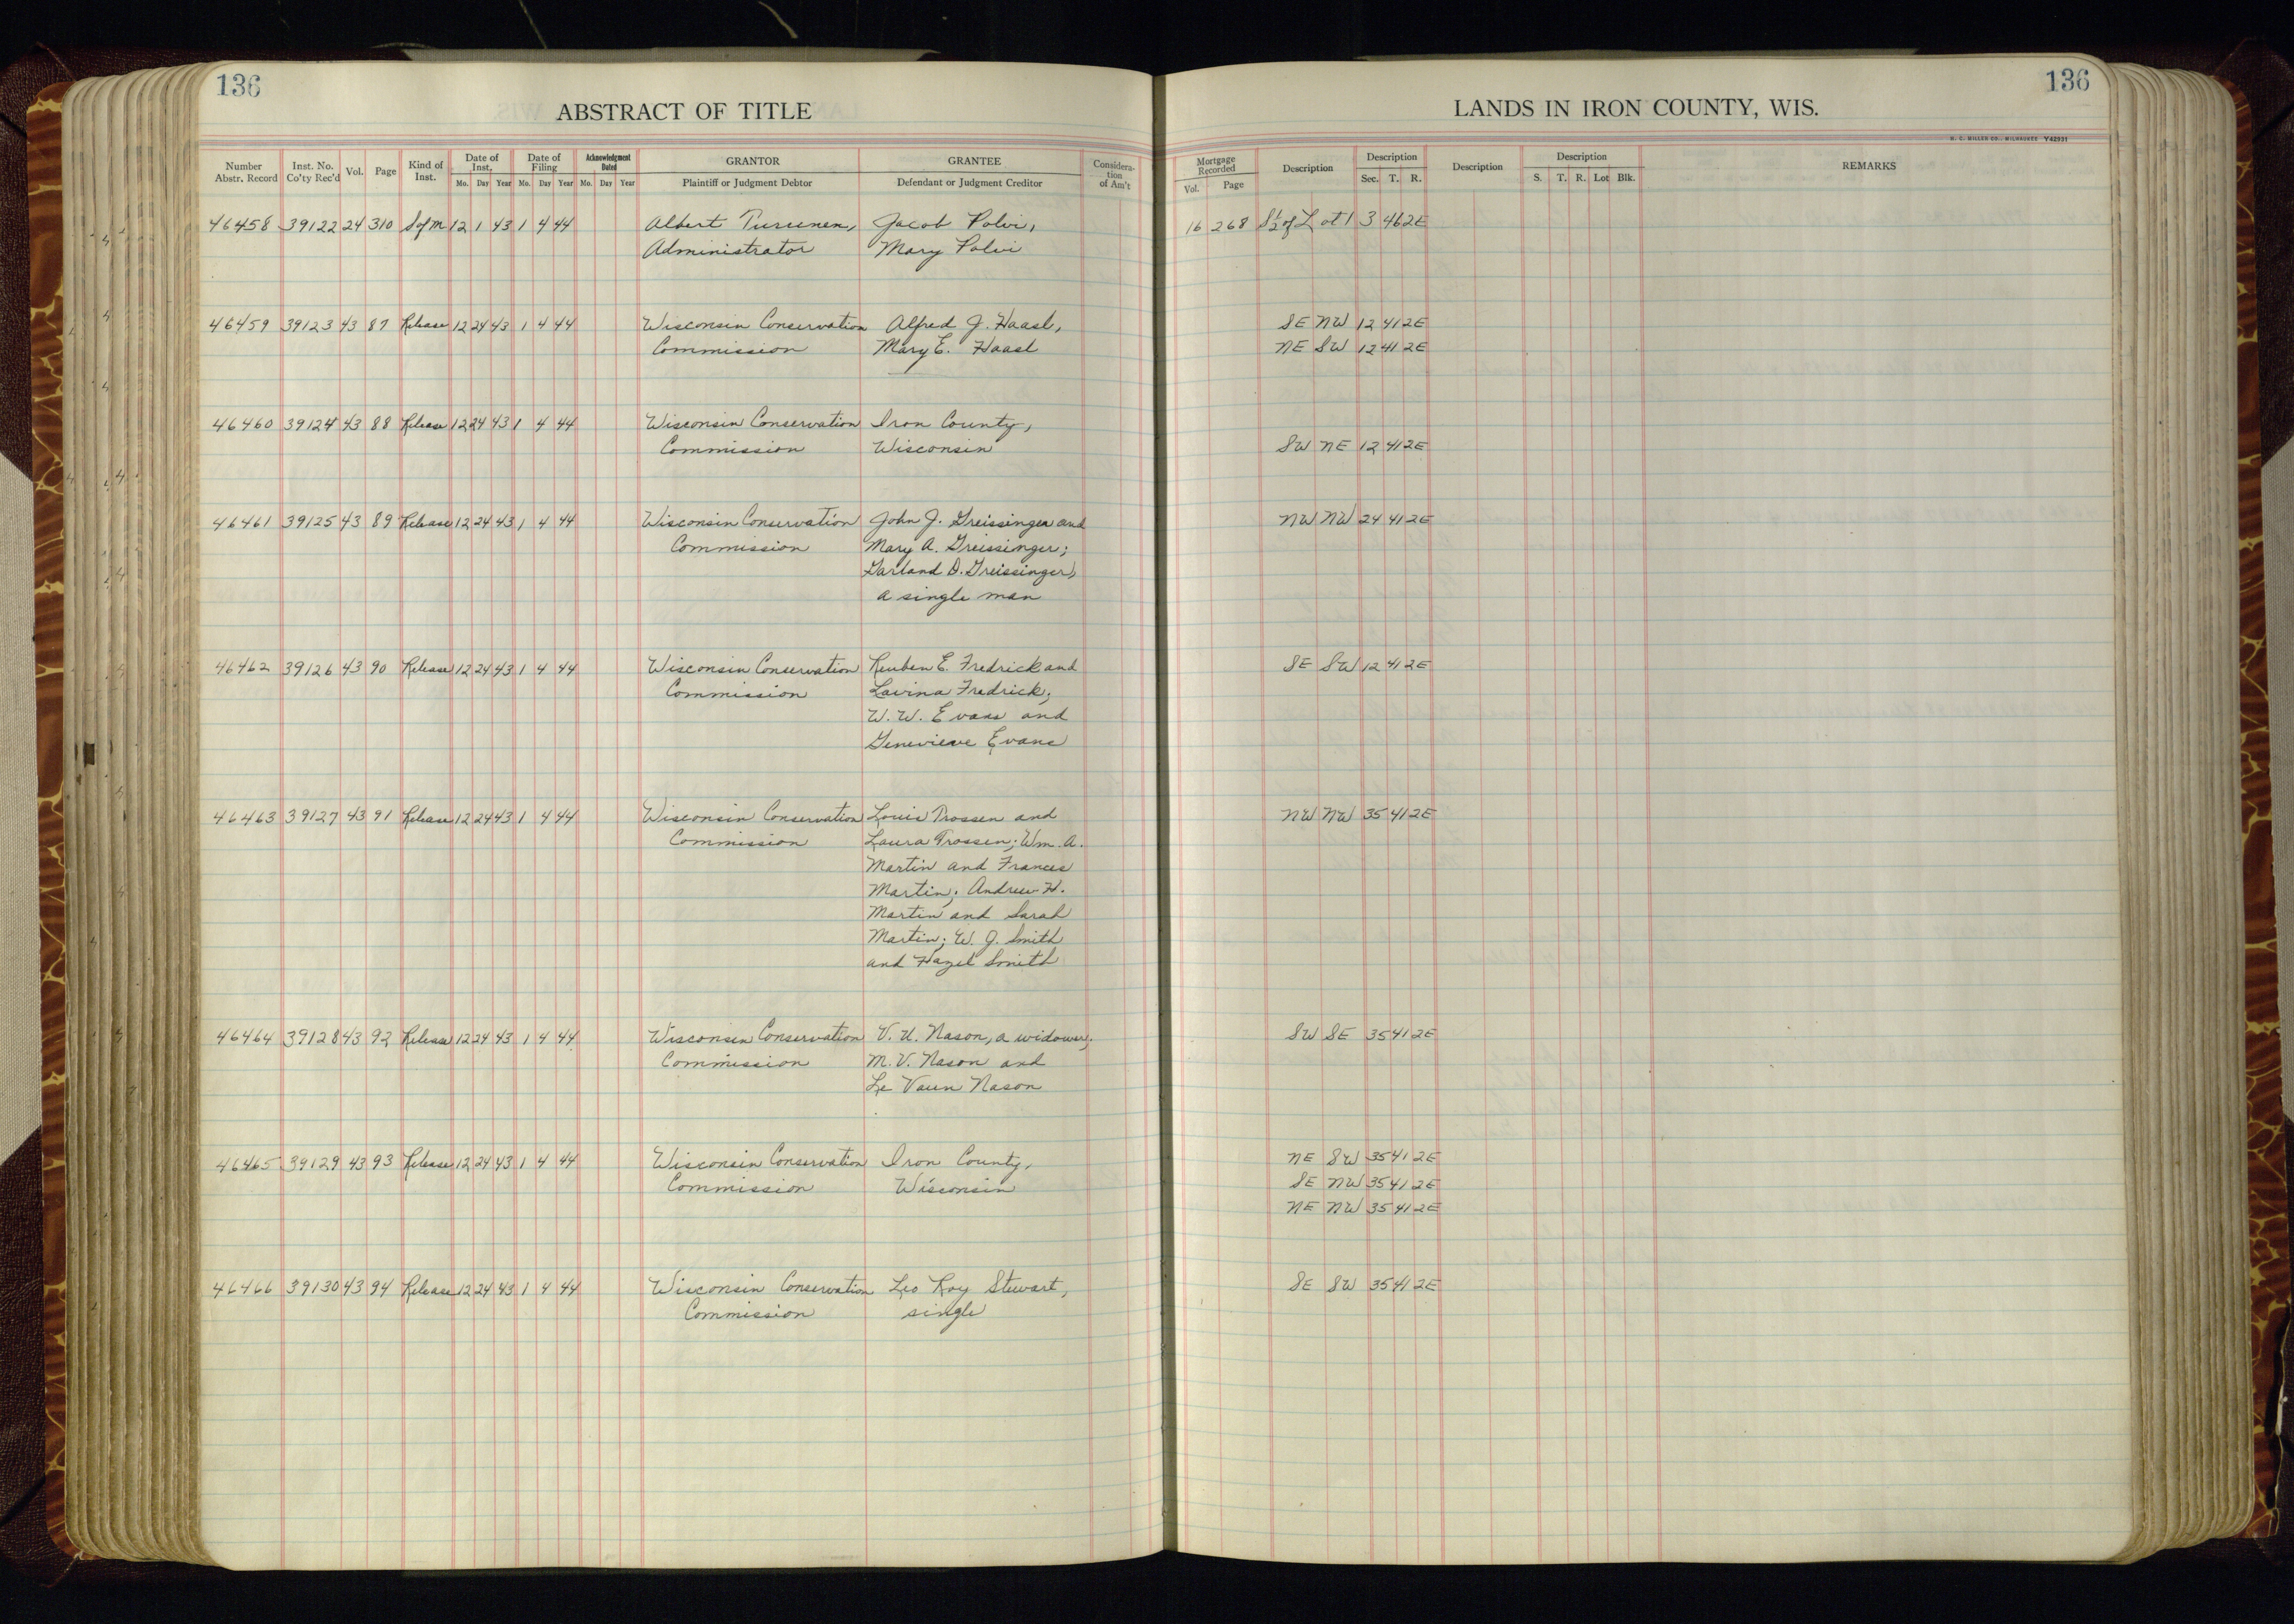 136
ABSTRACT OF TITLE
Number Abstr. Record Inst. No. Co'ty Rec'd Vol. Page Kind of Inst. Date of Inst. Mo. Day Year Date of Filing Mo. Day Year Acknowledgment Dated Mo. Day Year GRANTOR Plaintiff or Judgment Debtor GRANTEE Defendant or Judgment Creditor Considera-tion of Am't
46458 39122 24 310 S of M 12 1 43 1 4 44 Albert Tursenen, Jacob Polvi,
Administrator Mary Polvi
46459 39123 43 87 Release 12 24 43 1 4 44 Wisconsin Conservation Alfred J. Haasl,
Commission Mary E. Haasl
46460 39124 43 88 Release 12 24 43 1 4 44 Wisconsin Conservation Iron County,
Commission Wisconsin
46461 39125 43 89 Release 12 24 43 1 4 44 Wisconsin Conservation John J. Greissinger and
Commission Mary A. Greissinger;
Garland D. Greissinger,
a single man
46462 39126 43 90 Release 12 24 43 1 4 44 Wisconsin Conservation Reuben E. Fredrick and
Commission Lavina Fredrick;
W. W. Evans and
Genevieve Evans
46463 39127 43 91 Release 12 24 43 1 4 44 Wisconsin Conservation Louis Trossen and
Commission Laura Trossen; Wm. A.
Martin and Frances
Martin; Andrew H.
Martin and Sarah
Martin; W. J. Smith
and Hazel Smith
46464 39128 43 92 Release 12 24 43 1 4 44 Wisconsin Conservation V. U. Nason, a widower;
Commission M. V. Nason and
Le Vaun Nason
46465 39129 43 93 Release 12 24 43 1 4 44 Wisconsin Conservation Iron County,
Commission Wisconsin
46466 39130 43 94 Release 12 24 43 1 4 44 Wisconsin Conservation Leo Roy Stewart,
Commission single
136
LANDS IN IRON COUNTY, WIS.
H. C. MILLER CO., MILWAUKEE Y42931
Mortgage Recorded Vol. Page Description Description Sec. T. R. Description Description S. T. R. Lot Blk. REMARKS
16 268 S½ of Lot 1 3 46 2E
SE NW 12 41 2E
NE SW 12 41 2E
SW NE 12 41 2E
NW NW 24 41 2E
SE SW 12 41 2E
NW NW 35 41 2E
SW SE 35 41 2E
NE SW 35 41 2E
SE NW 35 41 2E
NE NW 35 41 2E
SE SW 35 41 2E